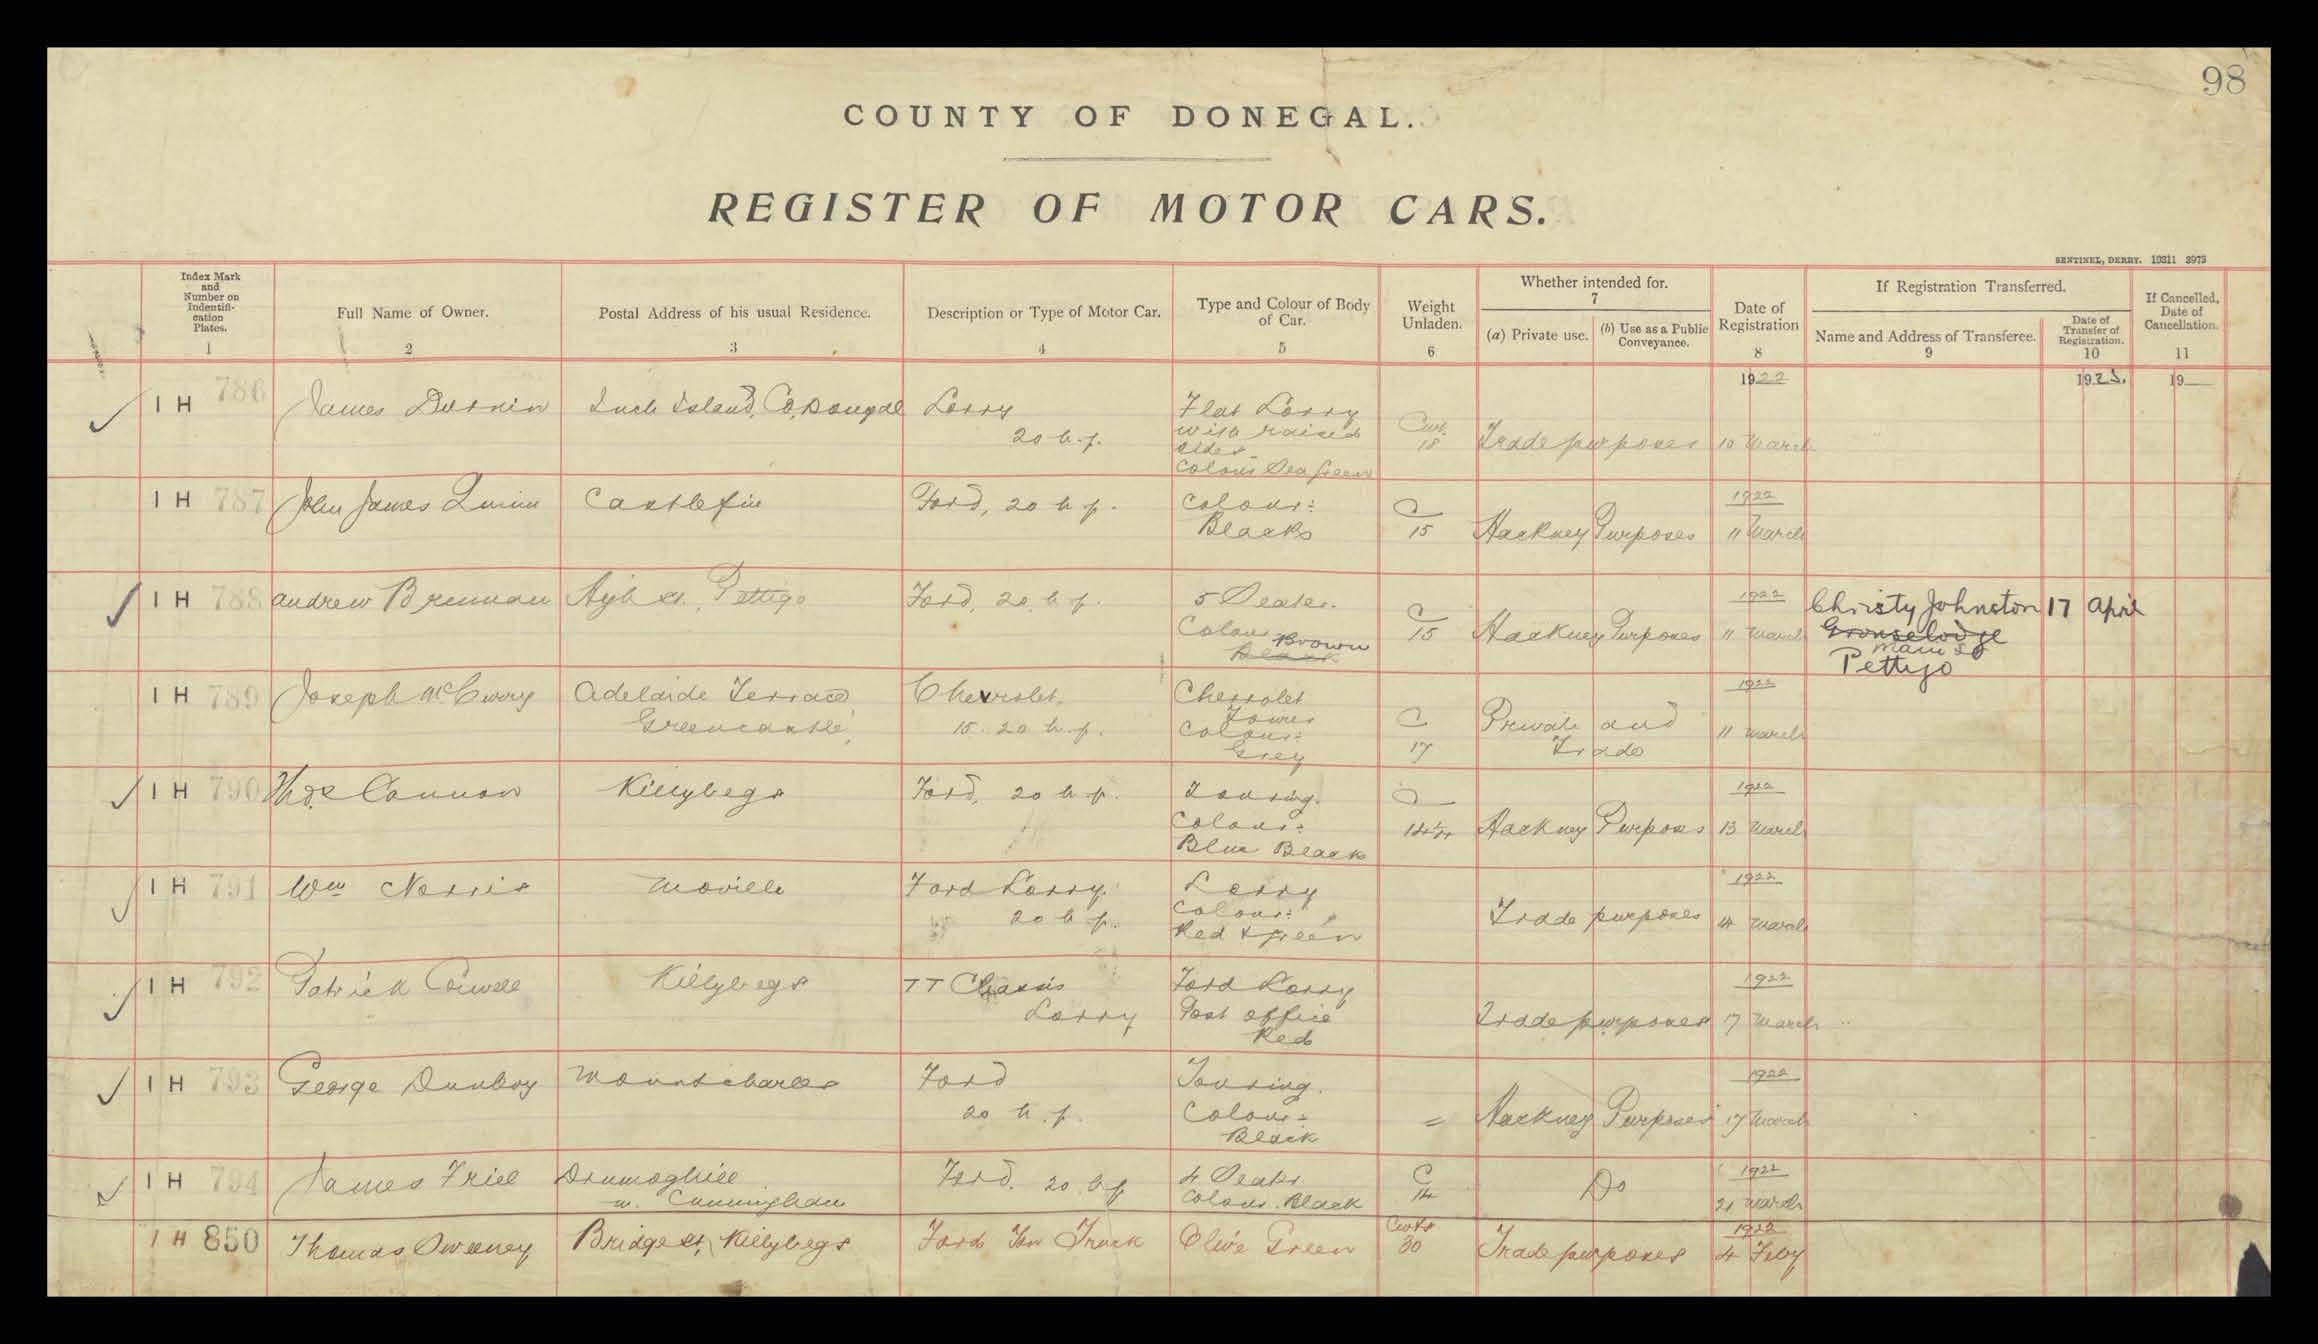 98
COUNTY OF DONEGAL.
REGISTER OF MOTOR CARS.
SENTINEL, DERRY. 19311 3973
Index Mark and Number on Indentifi-cation Plates. 1
Full Name of Owner. 2
Postal Address of his usual Residence. 3
Description or Type of Motor Car. 4
Type and Colour of Body of Car. 5
Weight Unladen. 6
Whether intended for. 7
(a) Private use.
(b) Use as a Public Conveyance.
Date of Registration 8
If Registration Transferred.
Name and Address of Transferee. 9
Date of Transfer of Registration. 10
If Cancelled, Date of Cancellation. 11
1922 1923. 19
IH 786 James Durnin Inch Island, Co. Donegal Lorry
20 h.p.
Flat Lorry
with raised
sides.
Colour Sea Green
Cwt.
18
Trade purposes 10 March
IH 787 John James Quinn Castlefin Ford, 20 h.p.
Colour:
Black
C
15
Hackney Purposes
1922
11 March
IH 788 Andrew Brennan High St., Pettigo Ford, 20 h.p.
5 Seater.
Colour Brown
Black
C
15
Hackney Purposes
1922
11 March
Christy Johnston 17 April
Grouselodge
Main St
Pettigo
IH 789 Joseph McElwory Adelaide Terrace
Greencastle,
Chevrolet.
15.20 h.p.
Chevrolet
Colour:
Grey
C
17
Private and
Trade
1922
11 March
IH 790 Thos Cannon Killybegs Ford, 20 h.p.
Touring.
Colour:
Blue Black
C
14½
Hackney Purposes
1922
13 March
IH 791 Wm Norris Moville Ford Lorry
20 h.p.
Lorry
Colour:
Red & Green
Trade purposes
1922
14 March
IH 792 Patrick Killybegs TT Chassis
Lorry
Ford Lorry
Post Office
Red
Trade purposes
1922
17 March
IH 793 George Dunboy Mountcharles Ford
20 h.p.
Touring.
Colour:
Black
Hackney Purposes
1922
17 March
IH 794 James Friel Drumoghill
Cunningham
Ford. 20 h.p
4 Seater
Colour. Black
C
14
Do
1922
21 March
IH 850 Thomas Sweeney Bridge St, Killybegs Ford Ton Truck Olive Green
Cwts
30
Trade purposes
1922
4 Feby